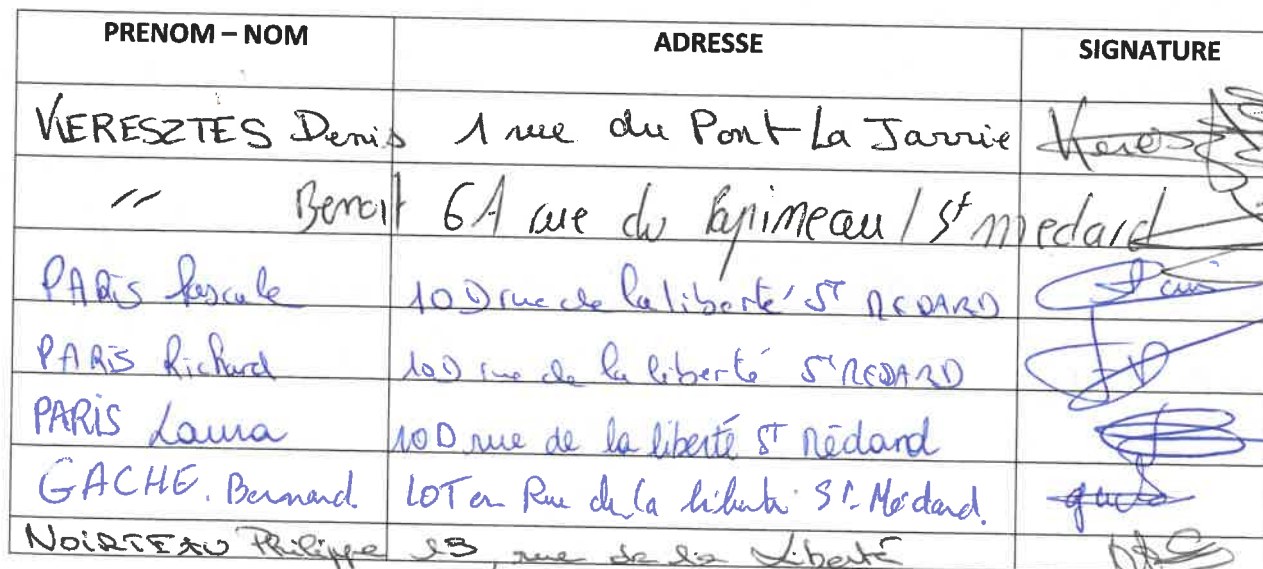 PRENOM – NOM ADRESSE SIGNATURE
KERESZTES Denis 1 rue du Pont La Jarrie
〃 Benoit 6A rue du / St medard
PARIS Pascale 10D rue de la liberté ST MEDARD
PARIS Richard 10D rue de la liberté ST MEDARD
PARIS Laura 10D rue de la liberté ST Médard
GACHE. Bernard. Rue de la liberté St Médard.
Philippe 13, rue de la Liberté